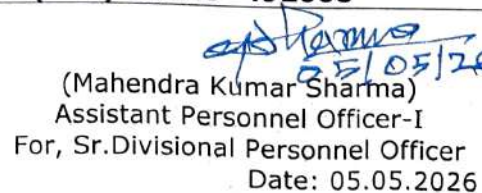 Sharma
05/05/26
(Mahendra Kumar Sharma)
Assistant Personnel Officer-I
For, Sr.Divisional Personnel Officer
Date: 05.05.2026